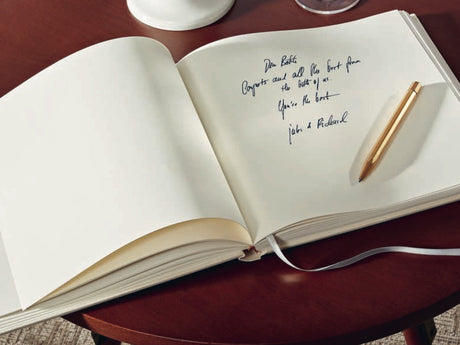 Dear
Congrats and all the best from
the both of us.
You're the best
& Richard